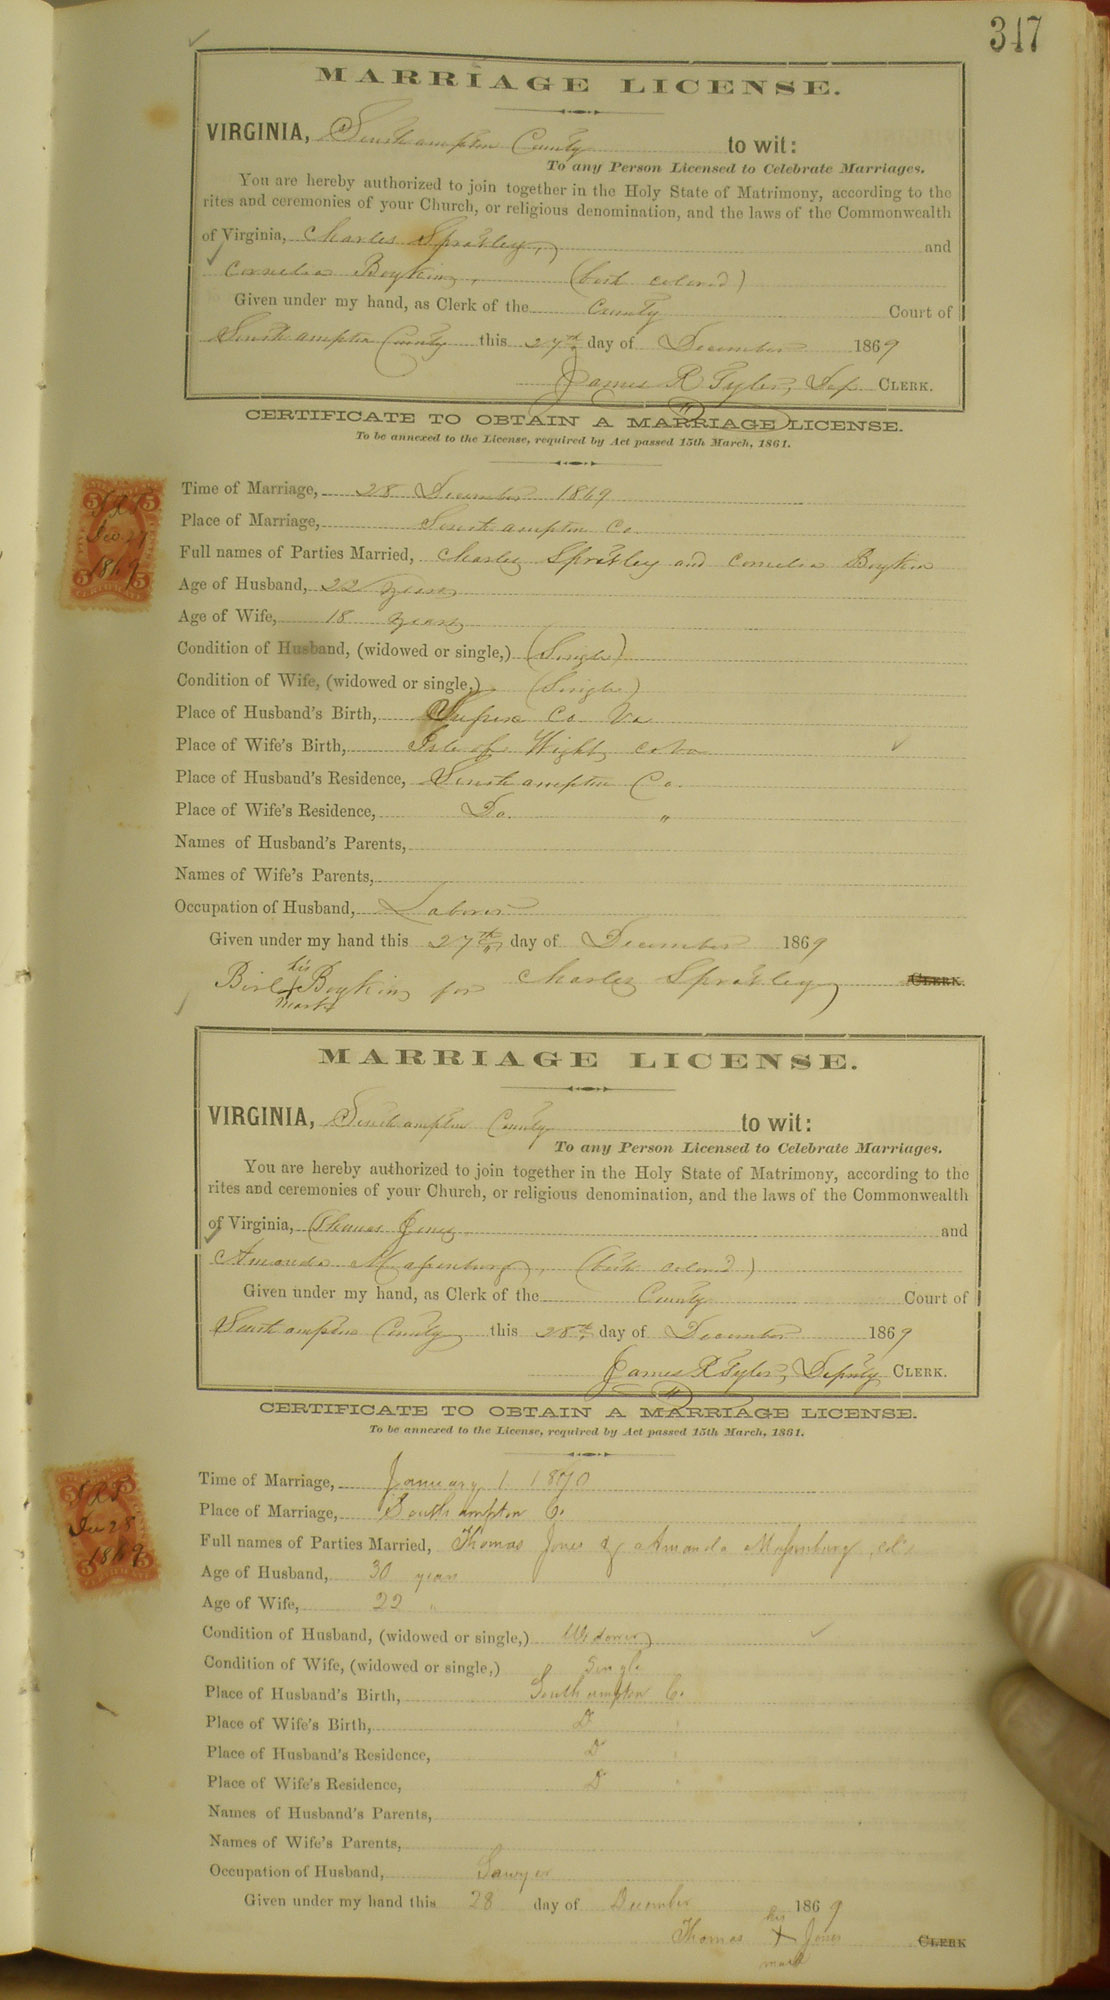 347
MARRIAGE LICENSE.
VIRGINIA, Southampton County to wit:
To any Person Licensed to Celebrate Marriages.
You are hereby authorized to join together in the Holy State of Matrimony, according to the
rites and ceremonies of your Church, or religious denomination, and the laws of the Commonwealth
of Virginia, Charles Spratley, and
Cornelia Boykin, (both colored)
Given under my hand, as Clerk of the County Court of
Southampton County this 27th day of December 1869
James R Tyler, Dep CLERK.
CERTIFICATE TO OBTAIN A MARRIAGE LICENSE.
To be annexed to the License, required by Act passed 15th March, 1861.
JRT
Dec 27
1869
Time of Marriage, 28 December 1869
Place of Marriage, Southampton Co.
Full names of Parties Married, Charles Spratley and Cornelia Boykin
Age of Husband, 22 years
Age of Wife, 18 years
Condition of Husband, (widowed or single,) (Single)
Condition of Wife, (widowed or single,) (Single)
Place of Husband's Birth, Sussex Co Va
Place of Wife's Birth, Isle of Wight co Va
Place of Husband's Residence, Southampton Co.
Place of Wife's Residence, Do. "
Names of Husband's Parents,
Names of Wife's Parents,
Occupation of Husband, Laborer
Given under my hand this 27th day of December 1869
his
Boykin for Charles Spratley CLERK.
mark
MARRIAGE LICENSE.
VIRGINIA, Southampton County to wit:
To any Person Licensed to Celebrate Marriages.
You are hereby authorized to join together in the Holy State of Matrimony, according to the
rites and ceremonies of your Church, or religious denomination, and the laws of the Commonwealth
of Virginia, Thomas Jones and
Amanda Massenburg, (both colored)
Given under my hand, as Clerk of the County Court of
Southampton County this 28th day of December 1869
James R Tyler, Deputy CLERK.
CERTIFICATE TO OBTAIN A MARRIAGE LICENSE.
To be annexed to the License, required by Act passed 15th March, 1861.
JRT
Dec 28
1869
Time of Marriage, January 1 1870
Place of Marriage, Southampton Co.
Full names of Parties Married, Thomas Jones & Amanda Massenburg col'd
Age of Husband, 30 years
Age of Wife, 22 "
Condition of Husband, (widowed or single,) Widower
Condition of Wife, (widowed or single,) Single
Place of Husband's Birth, Southampton Co.
Place of Wife's Birth, D "
Place of Husband's Residence, D "
Place of Wife's Residence, D "
Names of Husband's Parents,
Names of Wife's Parents,
Occupation of Husband, Sawyer
Given under my hand this 28 day of December 1869
his
Thomas X Jones CLERK
mark